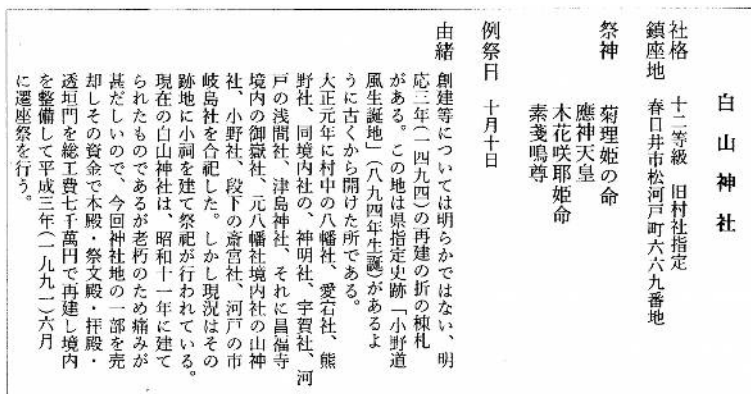 白山神社
社格　十二等級　旧村社指定
鎮座地　春日井市松河戸町六六九番地
祭神　菊理姫の命
應神天皇
木花咲耶姫命
素戔嗚尊
例祭日　十月十日
由緒　創建等については明らかではない、明
応三年(一四九四)の再建の折の棟札
がある。この地は県指定史跡「小野道
風生誕地」(八九四年生誕)があるよ
うに古くから開けた所である。
大正元年に村中の八幡社、愛宕社、熊
野社、同境内社の、神明社、宇賀社、河
戸の浅間社、津島神社、それに昌福寺
境内の御嶽社、元八幡社境内社の山神
社、小野社、段下の斎宮社、河戸の市
岐島社を合祀した。しかし現況はその
跡地に小祠を建て祭祀が行われている。
現在の白山神社は、昭和十一年に建て
られたものであるが老朽のため痛みが
甚だしいので、今回神社地の一部を売
却しその資金で本殿・祭文殿・拝殿・
透垣門を総工費七千萬円で再建し境内
を整備して平成三年(一九九一)六月
に遷座祭を行う。